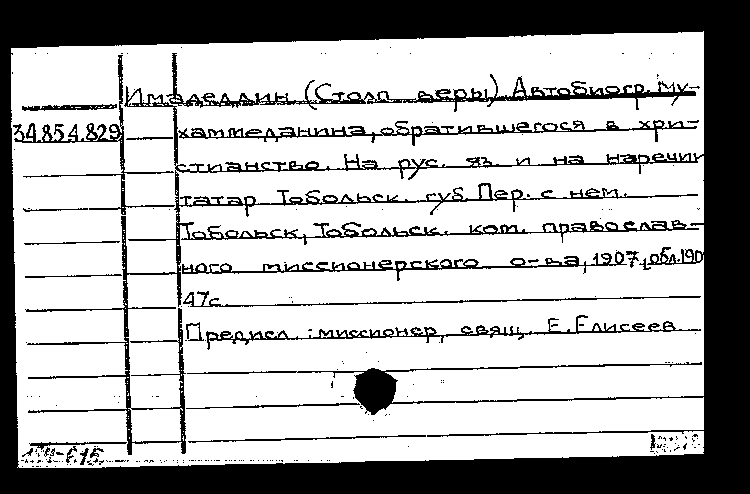 Имадеддин (Столп веры) Автобиогр. Му-
34.854.829 хаммеданина, обратившегося в хри-
стианство. На рус. яз. и на наречии
татар Тобольск. губ. Пер. с нем.
Тобольск, Тобольск. ком. православ-
ного миссионерского о-ва, 1907, обл. 190
47с.
Предисл.: миссионер, свящ. Е. Елисеев